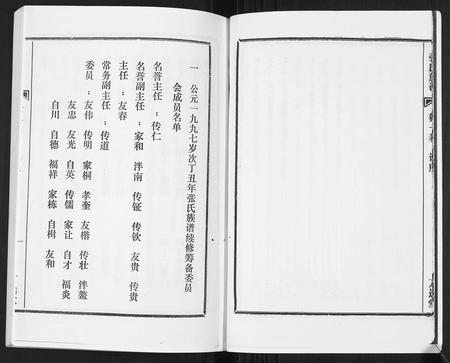 一 公元一九九七岁次丁丑年张氏族谱续修筹备委员
会成员名单
名誉主任：传仁
名誉副主任：家和 泮南 传钲 传钦 友贵 传贵
主任：友春
常务副主任：传道
委员：友伟 传明 家桐 孝奎 友楷 传壮 泮鳌
友忠 友光 自英 传儒 家让 自才 福炎
自川 自德 福祥 家栋 自楫 友和